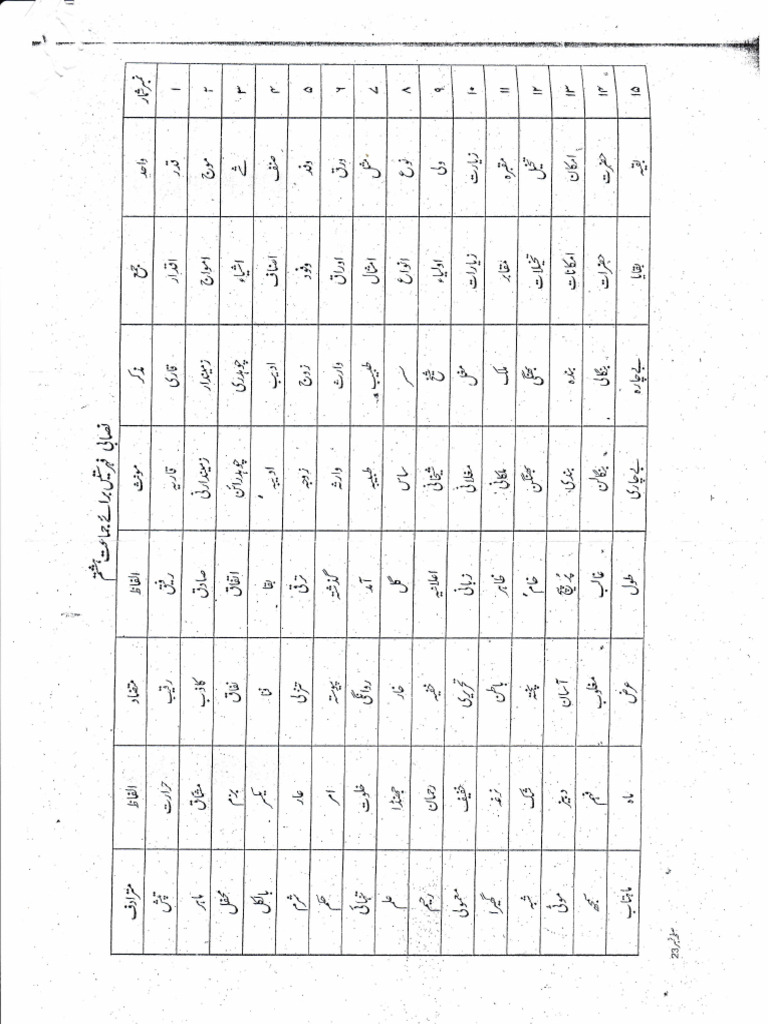 نصابی فہرستیں برائے جماعت ہشتم
نمبر شمار واحد جمع مذکر مونث الفاظ متضاد الفاظ مترادف
۱ قدر اقدار قاری قاریہ رفیق رقیب حرارت تپش
۲ موج امواج زمیندار زمیندارنی صادق کاذب مشاق ماہر
۳ شے اشیاء چوہدری چوہدرائن اتفاق نفاق بزم محفل
۴ صنف اصناف ادیب ادیبہ بقا فنا یکسر بالکل
۵ وفد وفود زوج زوجہ ترقی تنزلی عار شرم
۶ ورق اوراق وارث وارثہ گذشتہ پیوستہ امر حکم
۷ مثل امثال طبیب طبیبہ آمد روانگی خلوت تنہائی
۸ نوع انواع سسر ساس گل خار جھنڈا علم
۹ ولی اولیاء شیخ شیخانی اعلانیہ خفیہ رحمان رحیم
۱۰ زیارت زیارات مغل مغلانی زبانی تحریری خفیف معمولی
۱۱ مقبرہ مقابر ملک ملکانی ظاہر باطن نرغہ گھیرا
۱۲ تخیل تخیلات بھنگی بھنگن خام پختہ شک شبہ
۱۳ امکان امکانات بندہ بندی پُر پیچ آسان دبیز موٹی
۱۴ حضرت حضرات بنگالی بنگالن غالب مغلوب فہم سمجھ
۱۵ بقیہ بقایا بے چارہ بے چاری طول عرض ماہ ماہتاب
صفحہ نمبر 23